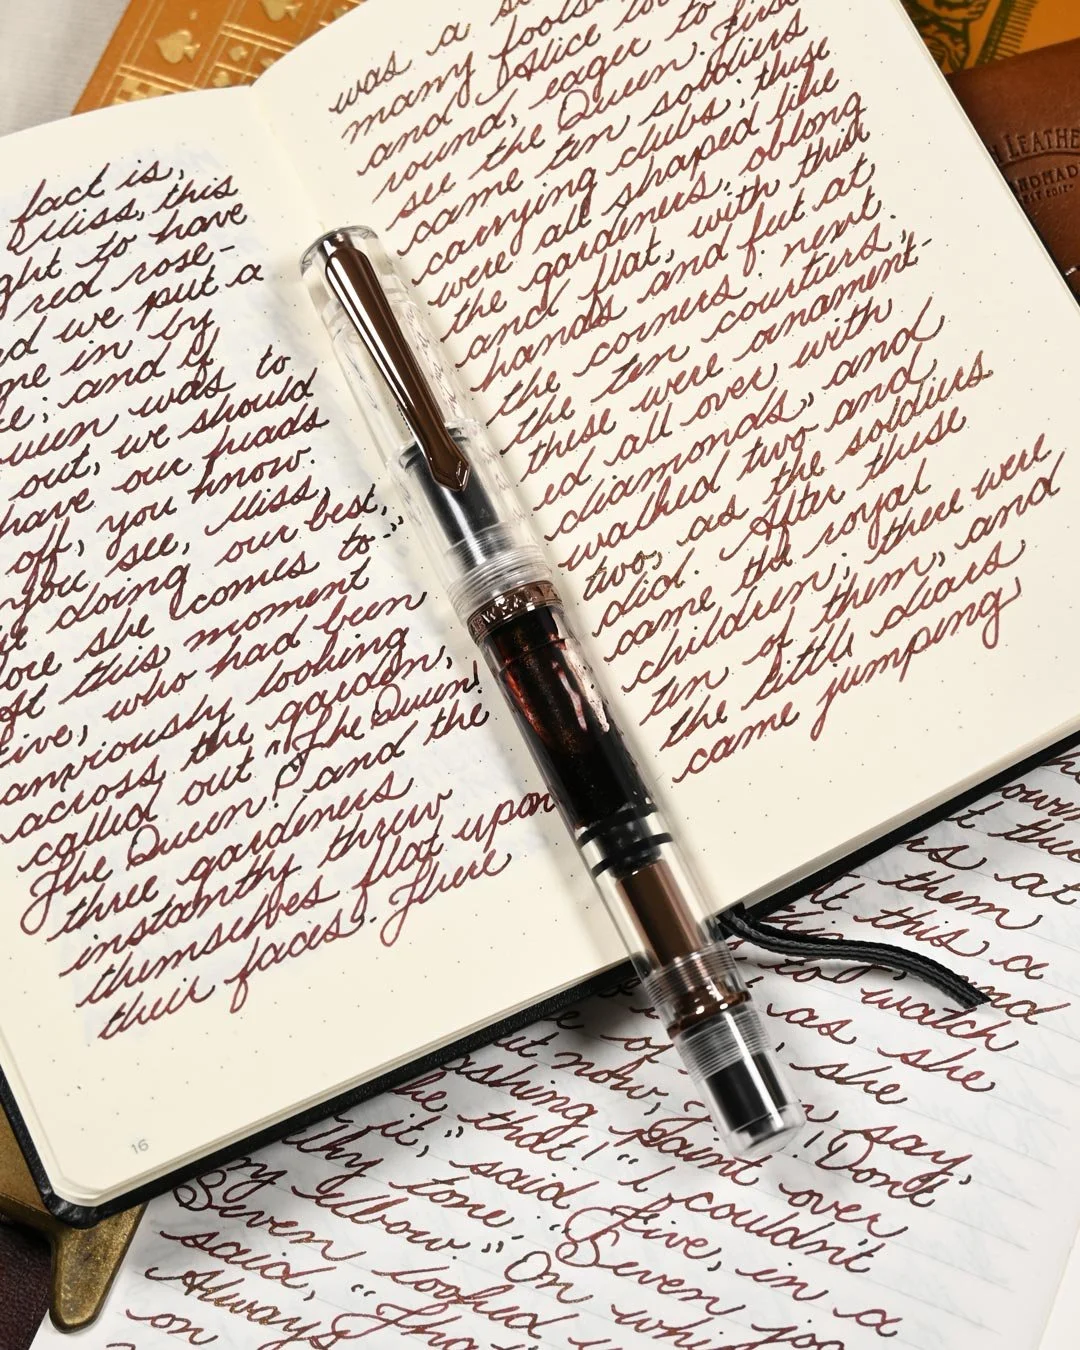 fact is,
Miss, this
ght to have
red rose-
nd we put a
one in by
e; and if
ueen was to
out, we should
have our heads
off, you know.
you see, Miss,
re doing our best,
fore she comes to-"
At this moment
Five, who had been
anxiously looking
across the garden,
called out "The Queen!
The Queen!" and the
three gardeners
instantly threw
themselves flat upon
their faces. There
16
was a
many foots
and Alice
round, eager to
see the Queen. First
came ten soldiers
carrying clubs; these
were all shaped like
the gardeners, oblong
and flat, with their
hands and feet at
the corners: next
the ten courtiers;
these were ornament-
ed all over with
diamonds, and
walked two and
two, as the soldiers
did. After these
came the royal
children; there were
ten of them, and
the little dears
came jumping
LEATHE
NDMAD
them
at this a
and
to watch
as she
of she
but now, say,
ashing paint over
the that! "Don't
it," said "I couldn't
my elbow." Five, in a
Seven looked
said, "Seven
Always On whi
on "Tha